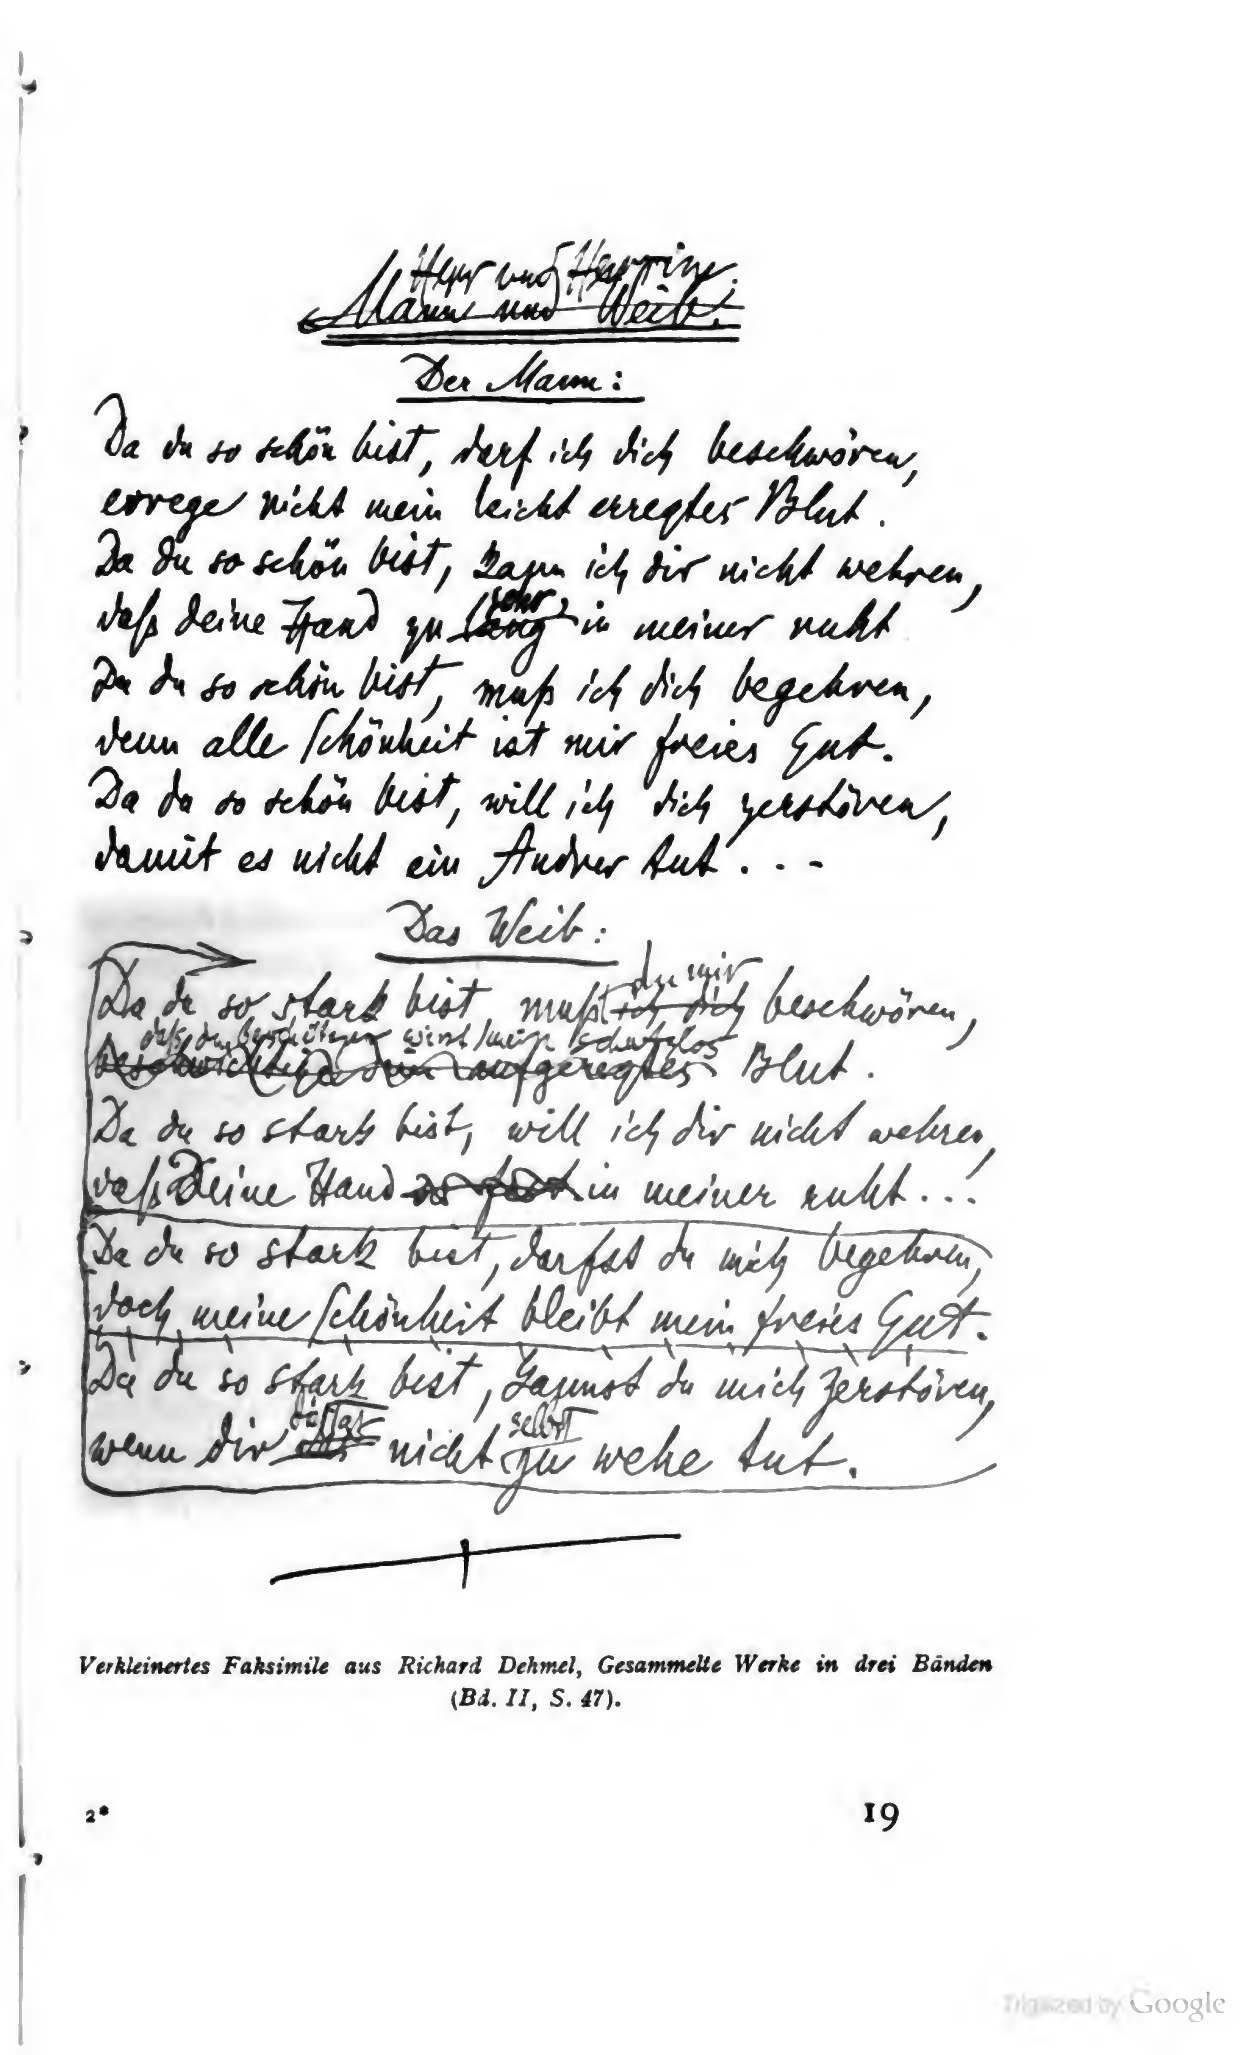 Herr und Herrin.
Mann und Weib.
Der Mann:
Da du so schön bist, darf ich dich beschwören,
errege nicht mein leicht erregtes Blut.
Da du so schön bist, kann ich dir nicht wehren,
sehr
daß deine Hand zu lang in meiner ruht
Da du so schön bist, muß ich dich begehren,
denn alle Schönheit ist mir freies Gut.
Da du so schön bist, will ich dich zerstören,
damit es nicht ein Andrer tut . . -
Das Weib:
du mir
Da du so stark bist, mußt ich dich beschwören,
daß du beschützen wirst mein schutzlos
beschwichtige dein aufgeregtes Blut.
Da du so stark bist, will ich dir nicht wehren,
daß Deine Hand so fest in meiner ruht...
Da du so stark bist, darfst du mich begehren,
doch meine Schönheit bleibt mein freies Gut.
Da du so stark bist, kannst du mich zerstören,
selbst
wenn dir nicht zu wehe tut.
Verkleinertes Faksimile aus Richard Dehmel, Gesammelte Werke in drei Bänden
(Bd. II, S. 47).
2* 19
Digitized by Google